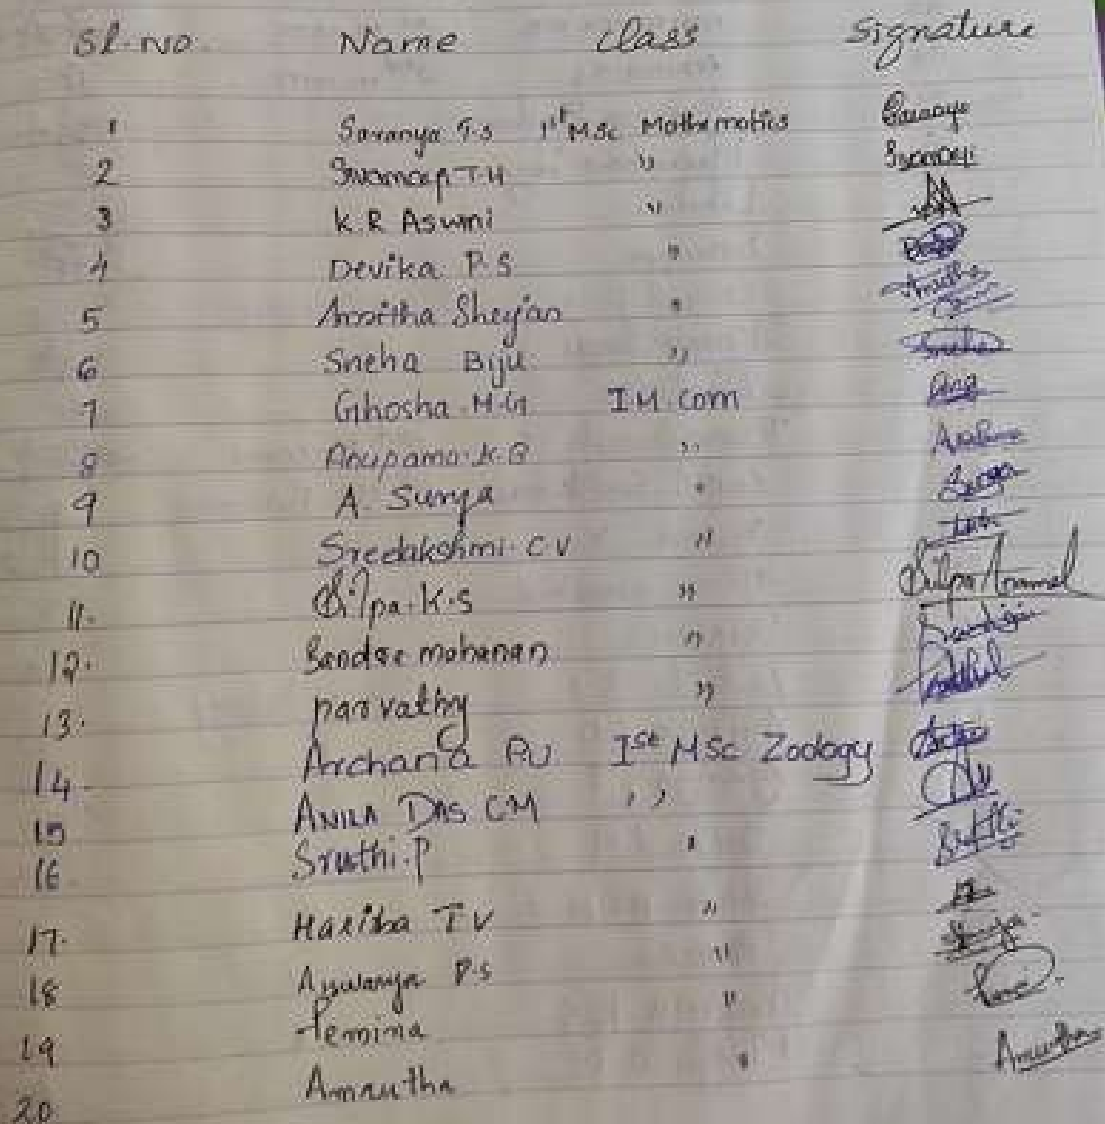 Sl.No. Name Class Signature
1 Saranya T.S 1st MSc Mathematics Saranya
2 T.H "
3 K.R Aswni "
4 Devika P.S "
5 Amritha Sheyjan " Amritha
6 Sneha Biju " Sneha
7 Ghosha M.G I M.com
8 Anupama K.B "
9 A. Surya " Surya
10 Sreelakshmi C V "
11. Silpa K.S " Silpa
12. Sandra mohanan "
13. parvathy "
14 Archana P.U Ist MSc Zoology
15 ANILA DAS CM "
16 Sruthi.P " Sruthi
17. Haritha T V "
18 Aiswarya P.S "
19 Femina "
20 Amrutha " Amrutha